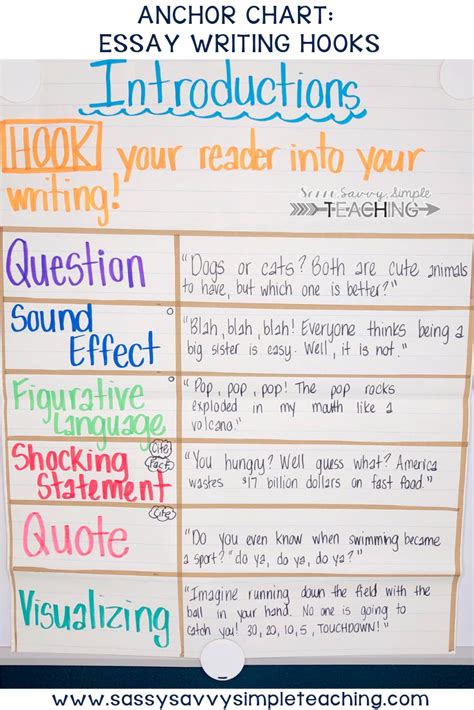 ANCHOR CHART:
ESSAY WRITING HOOKS
Introductions
HOOK your reader into your
writing!
Sassy, Savvy, Simple
TEACHING
Question
"Dogs or cats? Both are cute animals
to have, but which one is better?"
Sound
Effect
"Blah, blah, blah! Everyone thinks being a
big sister is easy. Well, it is not."
Figurative
Language
"Pop, pop, pop! The pop rocks
exploded in my mouth like a
volcano."
Shocking
Statement
Cite
Fact
"You hungry? Well guess what? America
wastes $17 billion dollars on fast food."
Quote
Cite
"Do you even know when swimming became
a sport?" do ya, do ya, do ya?"
Visualizing
"Imagine running down the field with the
ball in your hand. No one is going to
catch you! 30, 20, 10, 5, TOUCHDOWN!"
www.sassysavvysimpleteaching.com